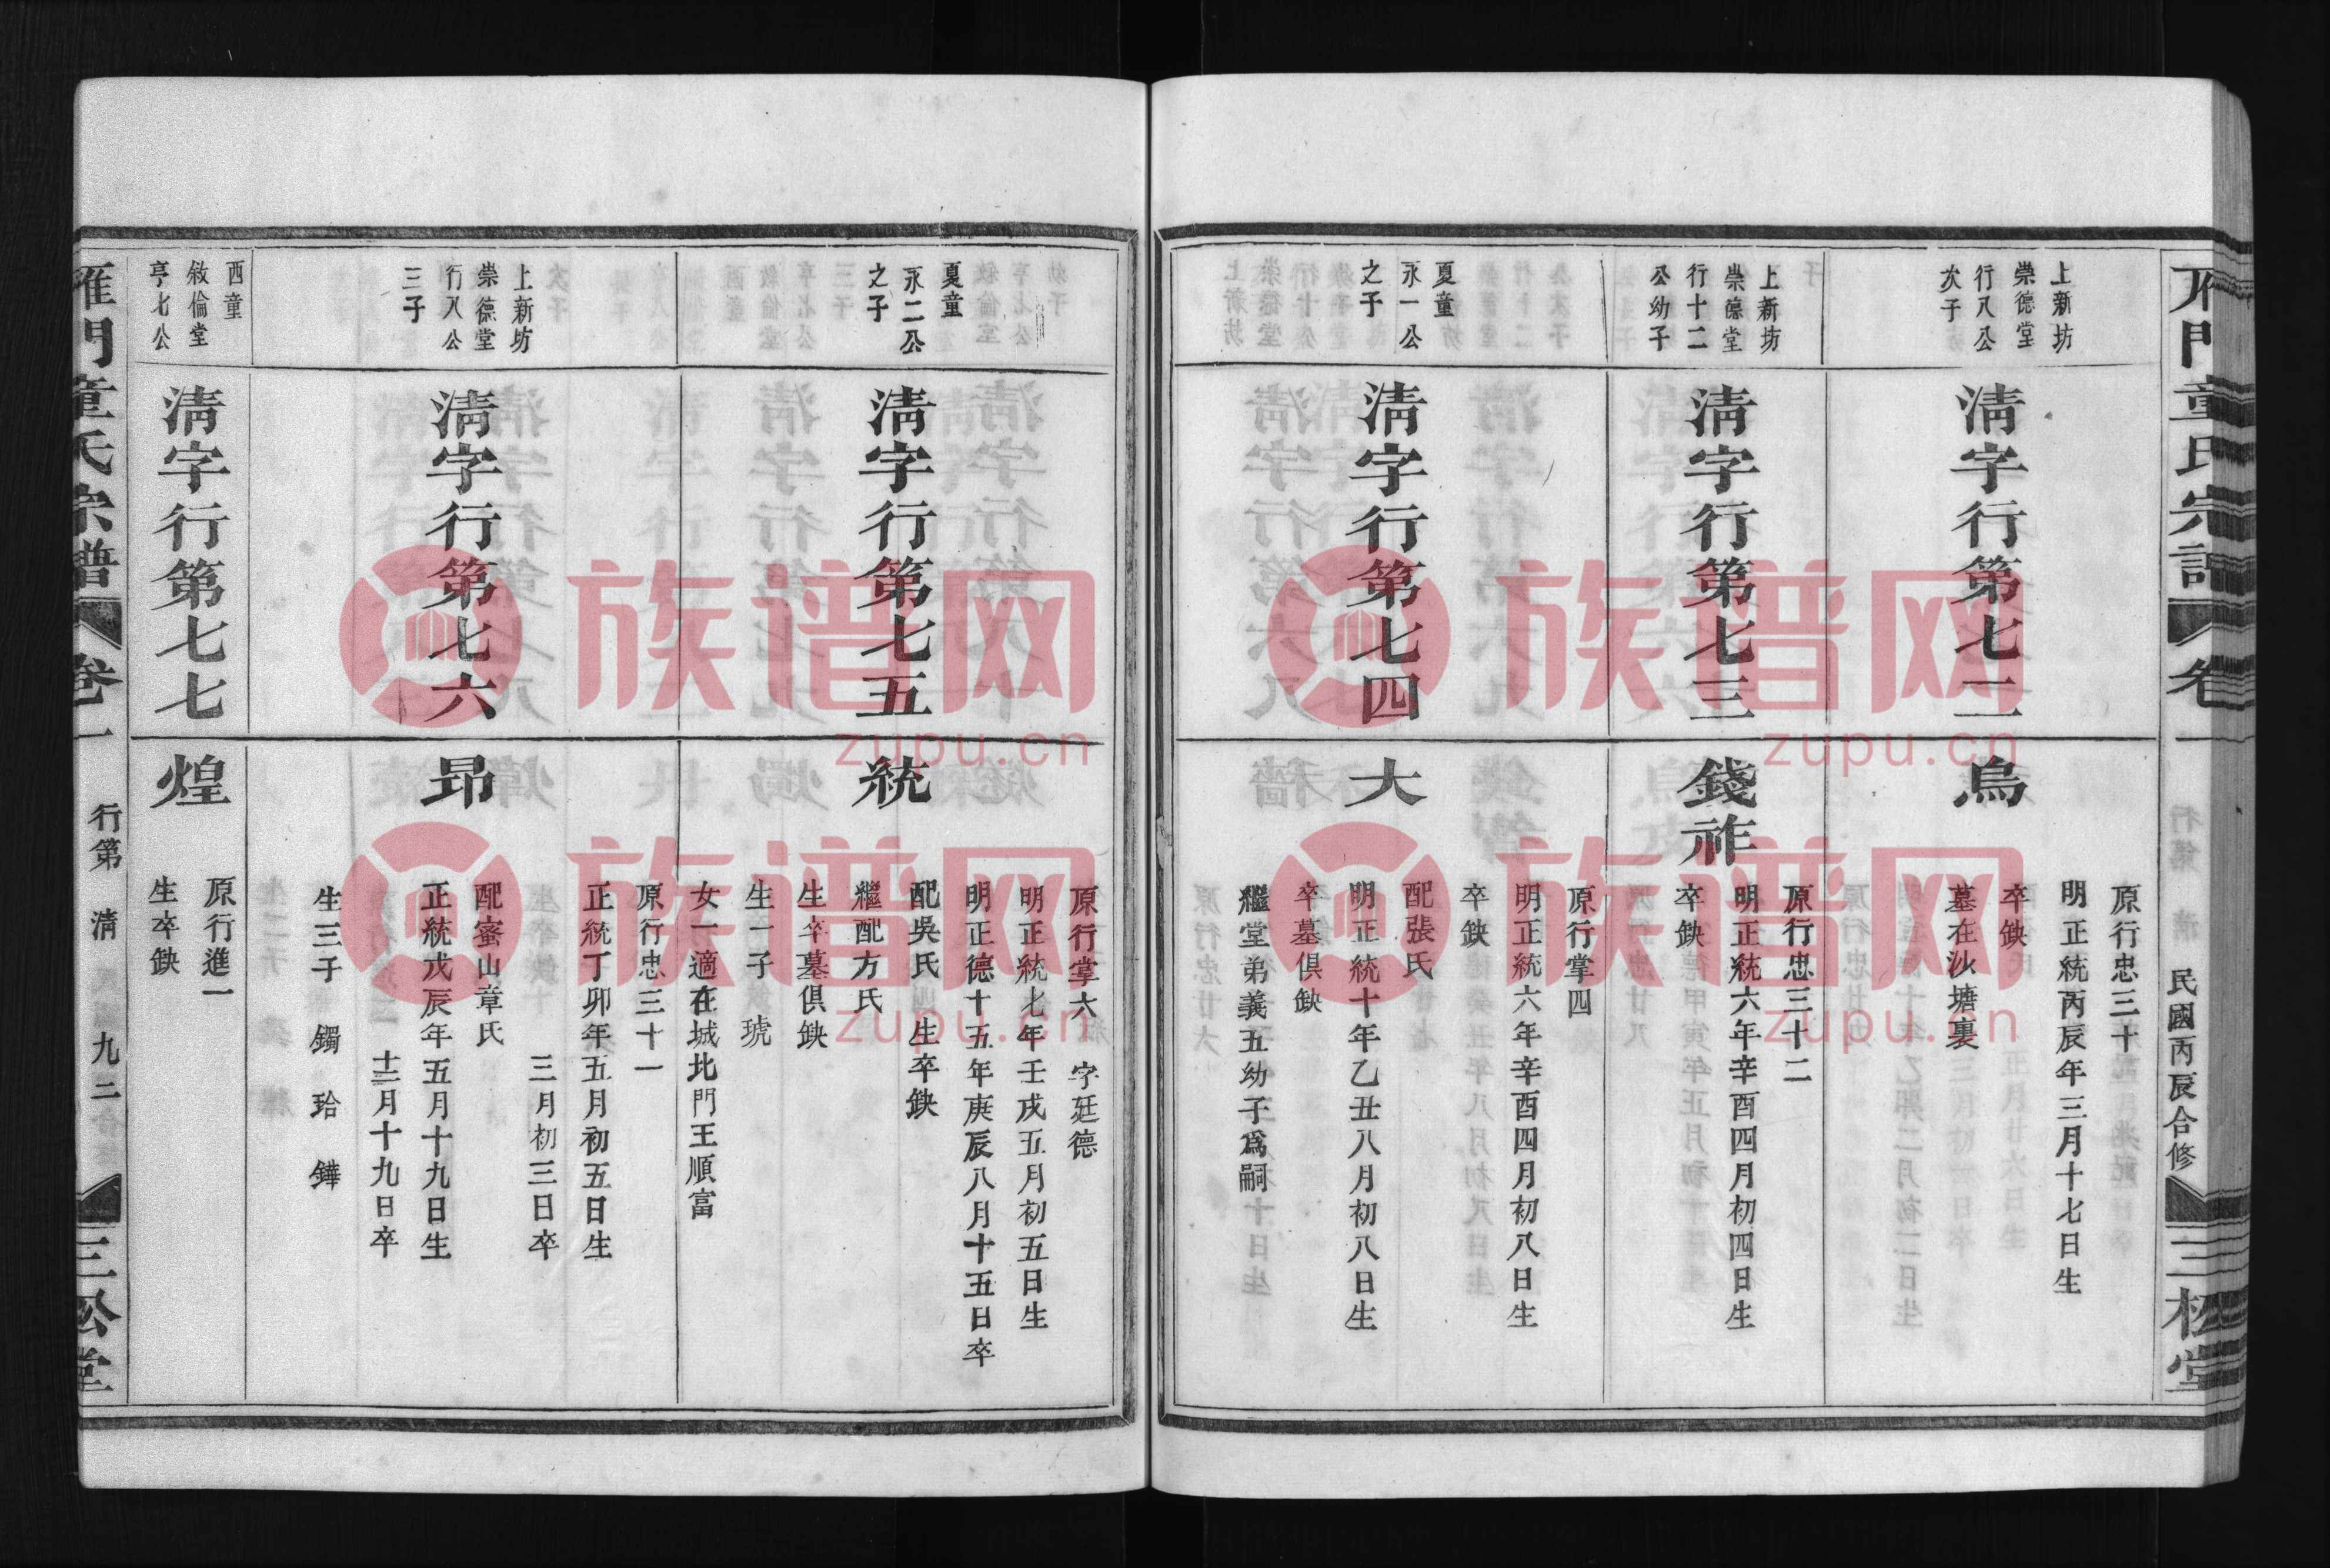 雁門童氏宗譜
卷一
民國丙辰合修
三松堂
上新坊
崇德堂
行八公
次子
淸字行第七二
烏
原行忠三十
明正統丙辰年三月十七日生
卒缺
墓在沙塘裏
上新坊
崇德堂
行十二
公幼子
淸字行第七三
錢祚
原行忠三十二
明正統六年辛酉四月初四日生
卒缺
夏童
永一公
之子
淸字行第七四
大
原行掌四
明正統六年辛酉四月初八日生
卒缺
配張氏
明正統十年乙丑八月初八日生
卒墓俱缺
繼堂弟義五幼子爲嗣
夏童
永二公
之子
淸字行第七五
統
原行掌六 字廷德
明正統七年壬戌五月初五日生
明正德十五年庚辰八月十五日卒
配吳氏 生卒缺
繼配方氏
生卒墓俱缺
生一子 琥
女一適在城北門王順富
上新坊
崇德堂
行八公
三子
淸字行第七六
昻
原行忠三十一
正統丁卯年五月初五日生
三月初三日卒
配蜜山章氏
正統戊辰年五月十九日生
十二月十九日卒
生三子 鐲 珨 鏵
西童
敘倫堂
亨七公
淸字行第七七
煌
原行進一
生卒缺
雁門童氏宗譜
卷一
行第 淸 九二
三松堂
族谱网
zupu.cn
族谱网
zupu.cn
族谱网
zupu.cn
族谱网
zupu.cn